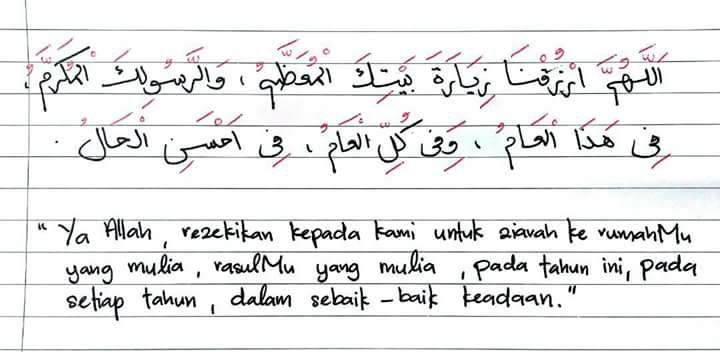 اللَّهُمَّ ارْزُقْنَا زِيَارَةَ بَيْتِكَ الْمُعَظَّمِ ، وَالرَّسُولِكَ الْمُكَرَّمُ ،
فِى هَذَا الْعَامُ ، وَفِى كُلِّ الْعَامُ ، فِى اَحْسَنِ الْحَالُ .
"Ya Allah, rezekikan kepada kami untuk ziarah ke rumahMu
yang mulia, rasulMu yang mulia, pada tahun ini, pada
setiap tahun, dalam sebaik-baik keadaan."